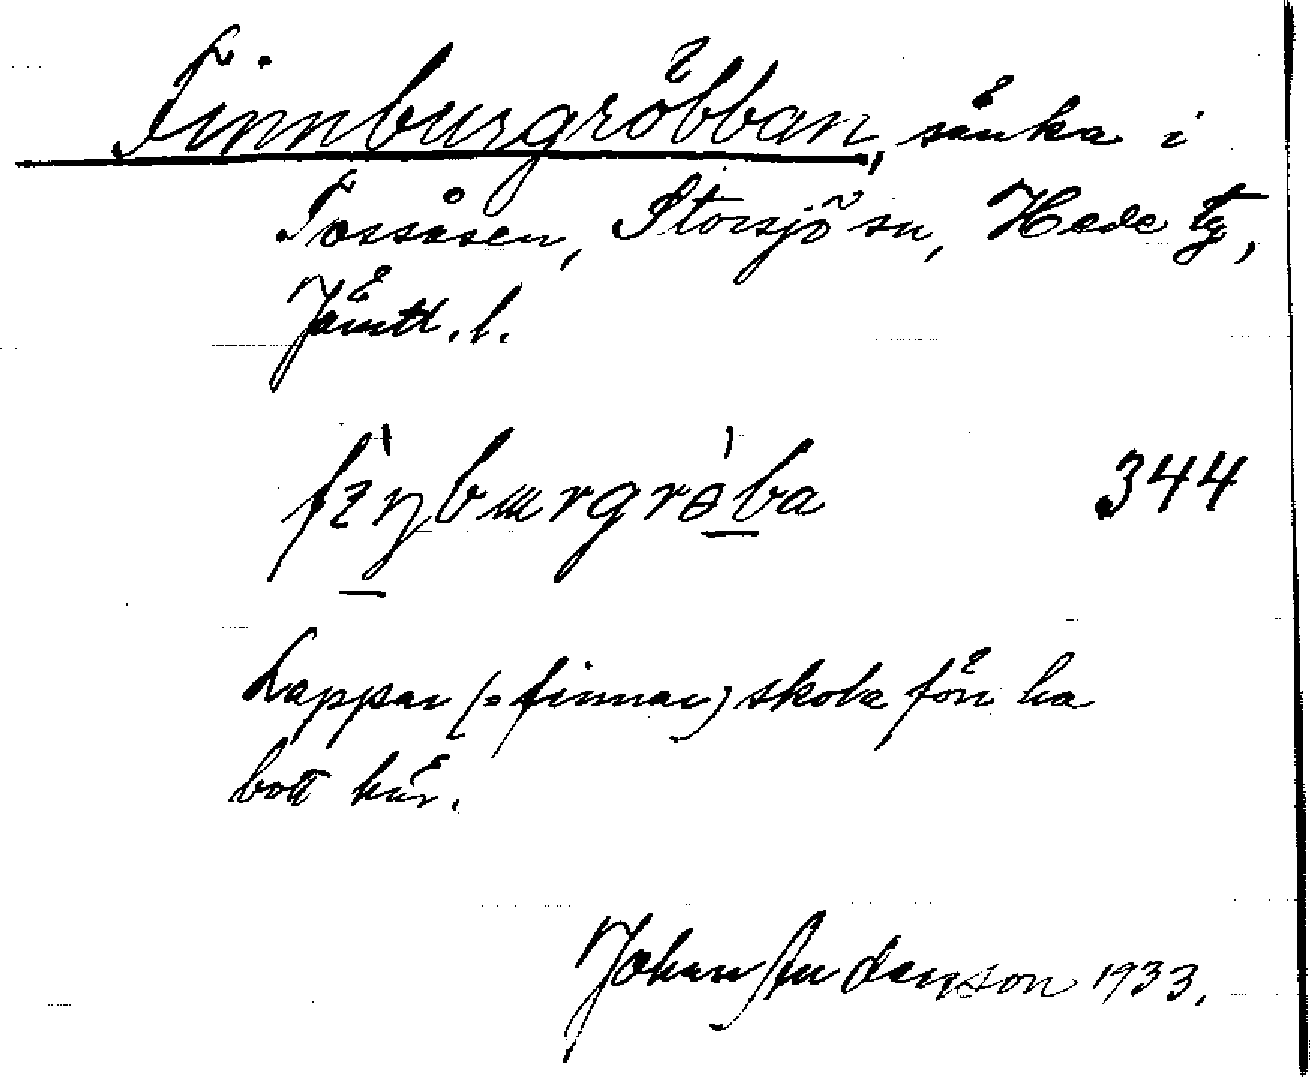 Finnburgröbban, sänka i
Tossåsen, Storsjö sn, Hede tg,
Jämtl. l.
344
Lappar (= finnar) skola förr ha
bott här.
Johan Andersson 1933.